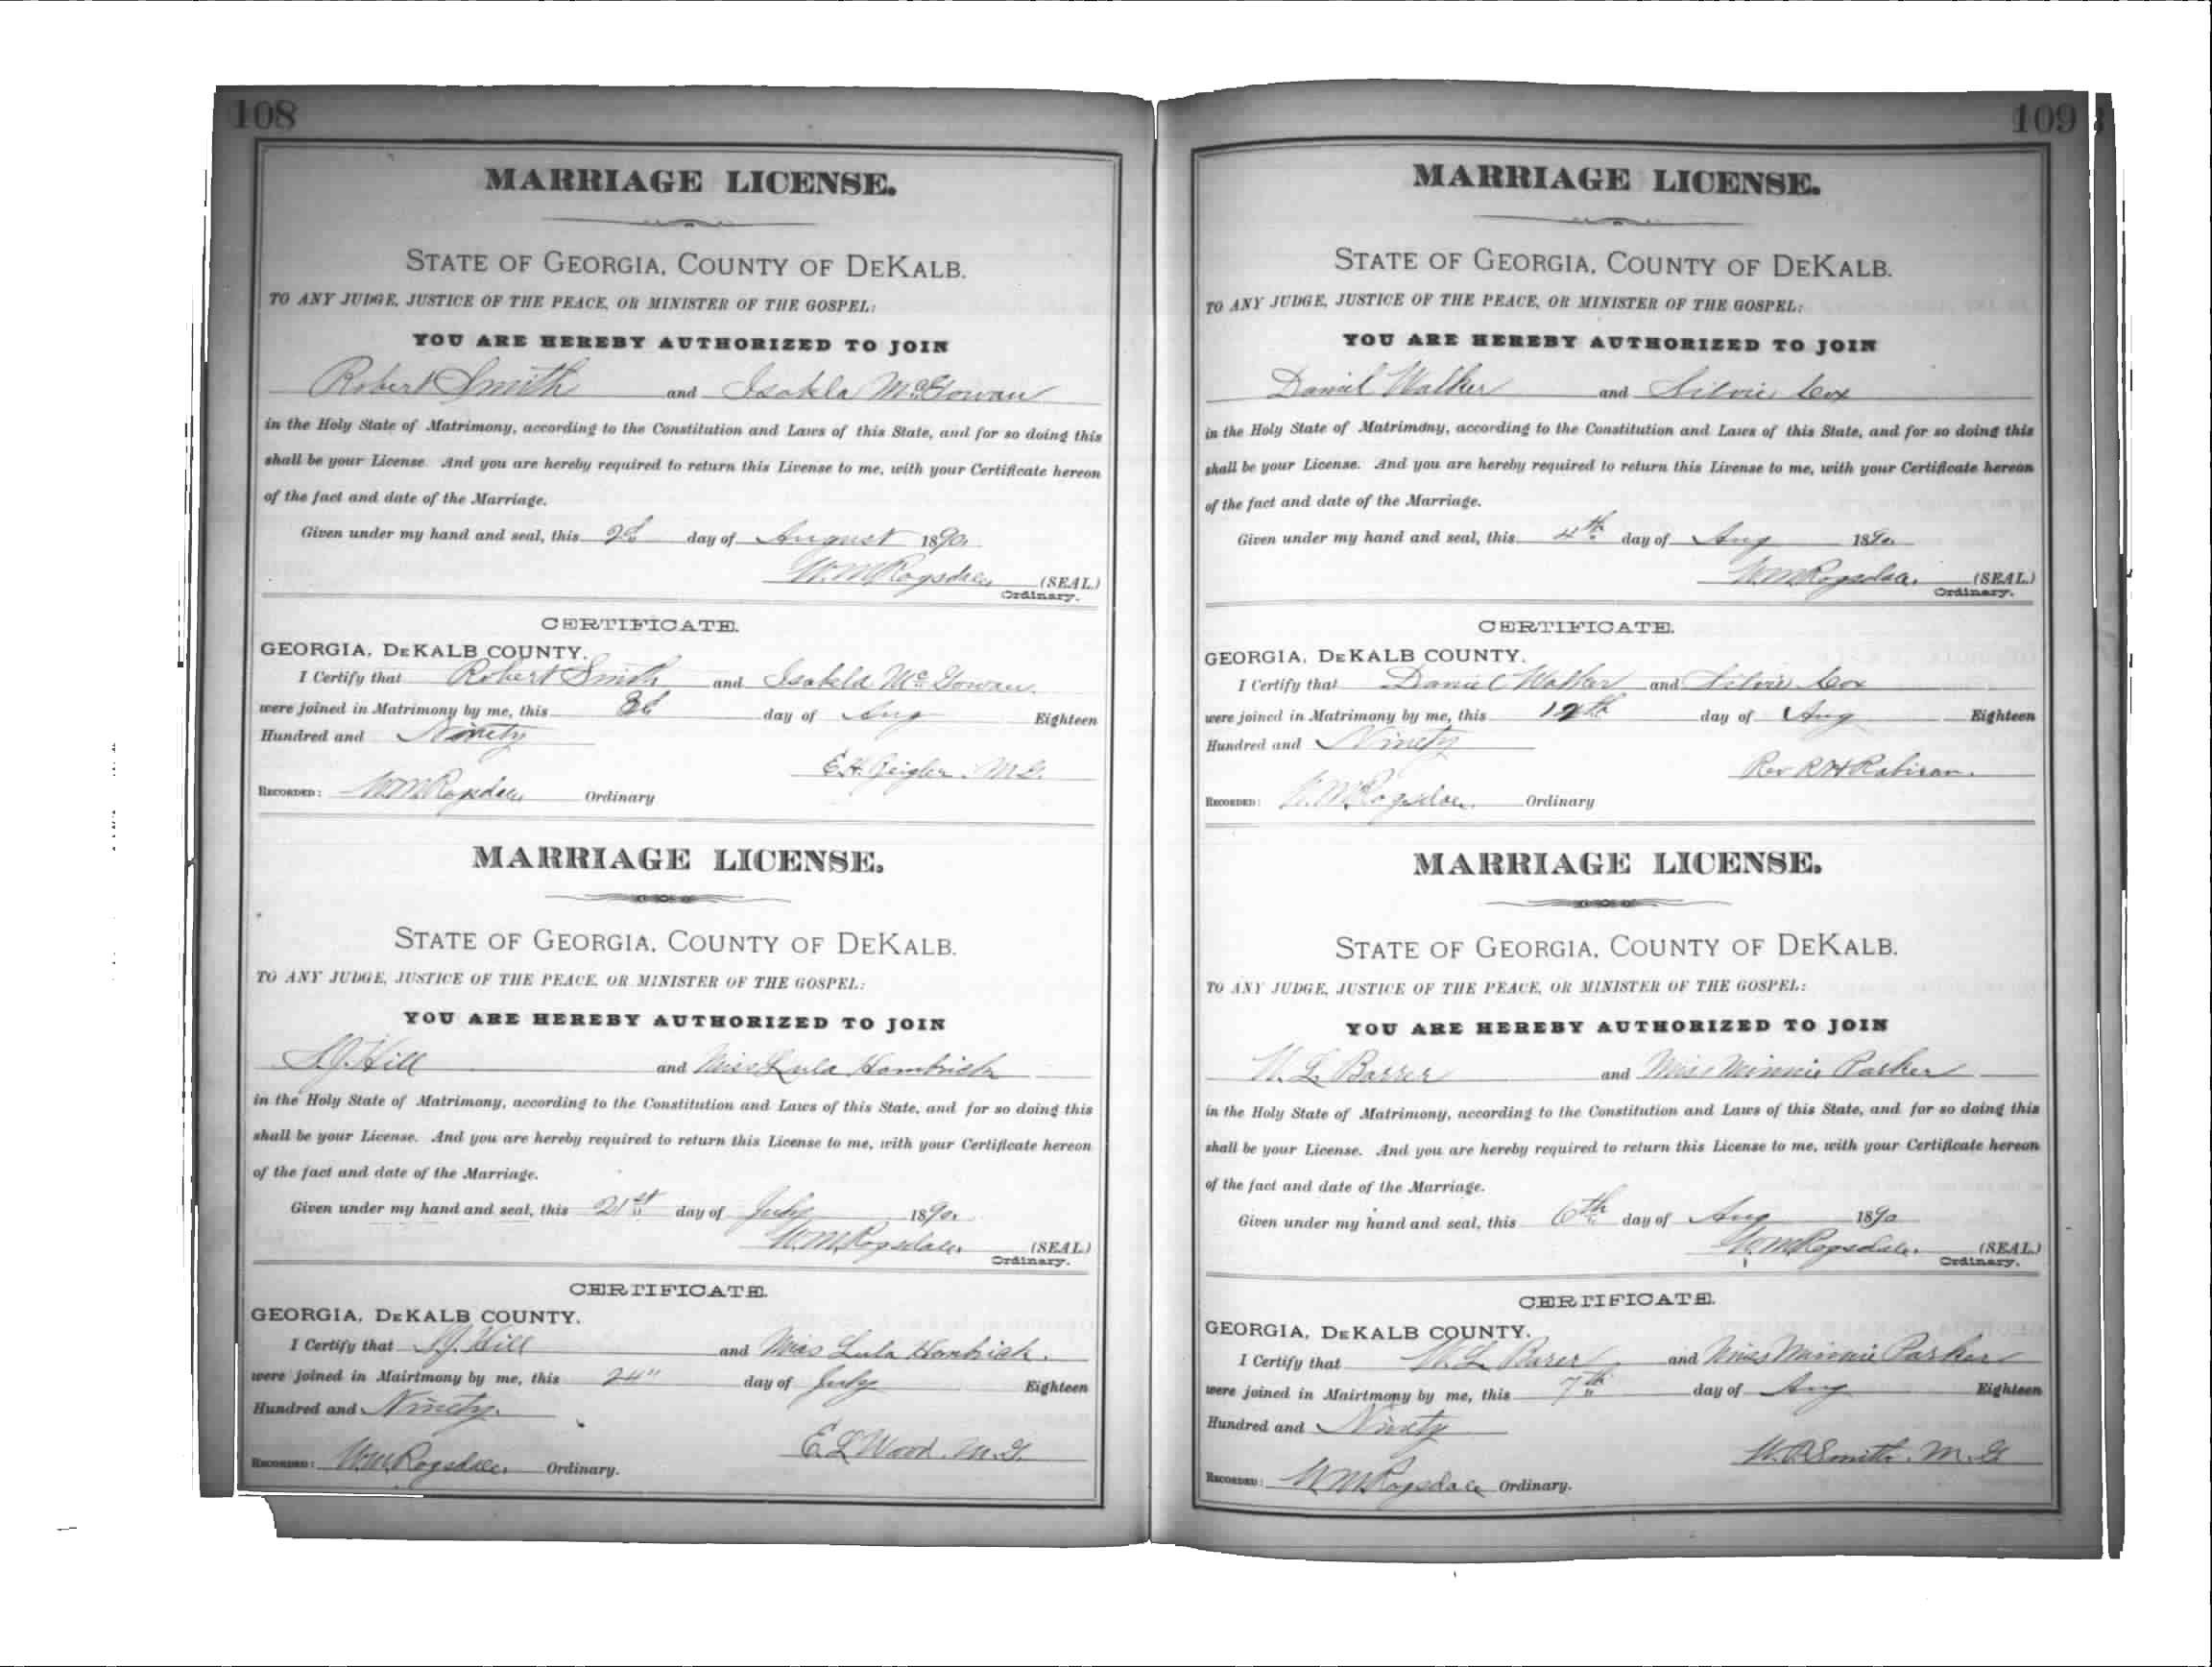 108
MARRIAGE LICENSE.
STATE OF GEORGIA, COUNTY OF DEKALB.
TO ANY JUDGE, JUSTICE OF THE PEACE, OR MINISTER OF THE GOSPEL:
YOU ARE HEREBY AUTHORIZED TO JOIN
Robert Smith and Isabela McGowan
in the Holy State of Matrimony, according to the Constitution and Laws of this State, and for so doing this
shall be your License. And you are hereby required to return this License to me, with your Certificate hereon
of the fact and date of the Marriage.
Given under my hand and seal, this 2d day of August 1890.
W. M. Ragsdale (SEAL.)
Ordinary.
CERTIFICATE.
GEORGIA, DEKALB COUNTY.
I Certify that Robert Smith and Isabela McGowan.
were joined in Matrimony by me, this 3d day of Aug Eighteen
Hundred and Ninety
E. H. M. G.
RECORDED: W M Ragsdale Ordinary
MARRIAGE LICENSE.
STATE OF GEORGIA, COUNTY OF DEKALB.
TO ANY JUDGE, JUSTICE OF THE PEACE, OR MINISTER OF THE GOSPEL:
YOU ARE HEREBY AUTHORIZED TO JOIN
Hill and Miss Lula Hambrick
in the Holy State of Matrimony, according to the Constitution and Laws of this State, and for so doing this
shall be your License. And you are hereby required to return this License to me, with your Certificate hereon
of the fact and date of the Marriage.
Given under my hand and seal, this 21st day of July 1890.
W. M. Ragsdale (SEAL.)
Ordinary.
CERTIFICATE.
GEORGIA, DEKALB COUNTY.
I Certify that Hill and Miss Lula Hambrick.
were joined in Mairtmony by me, this 24" day of July Eighteen
Hundred and Ninety.
E. L. Wood. M. G.
RECORDED: W M Ragsdale Ordinary.
109
MARRIAGE LICENSE.
STATE OF GEORGIA, COUNTY OF DEKALB.
TO ANY JUDGE, JUSTICE OF THE PEACE, OR MINISTER OF THE GOSPEL:
YOU ARE HEREBY AUTHORIZED TO JOIN
Daniel Walker and Silvie Cox
in the Holy State of Matrimony, according to the Constitution and Laws of this State, and for so doing this
shall be your License. And you are hereby required to return this License to me, with your Certificate hereon
of the fact and date of the Marriage.
Given under my hand and seal, this 4th day of Aug 1890.
W. M. Ragsdale. (SEAL.)
Ordinary.
CERTIFICATE.
GEORGIA, DEKALB COUNTY.
I Certify that Daniel Walker and Silvie Cox
were joined in Matrimony by me, this day of Aug Eighteen
Hundred and Ninety
Rev R H Robison.
RECORDED: W. M. Ragsdale. Ordinary
MARRIAGE LICENSE.
STATE OF GEORGIA, COUNTY OF DEKALB.
TO ANY JUDGE, JUSTICE OF THE PEACE, OR MINISTER OF THE GOSPEL:
YOU ARE HEREBY AUTHORIZED TO JOIN
W. L. and Miss Minnie Parker
in the Holy State of Matrimony, according to the Constitution and Laws of this State, and for so doing this
shall be your License. And you are hereby required to return this License to me, with your Certificate hereon
of the fact and date of the Marriage.
Given under my hand and seal, this 6th day of Aug 1890
W. M. Ragsdale. (SEAL.)
Ordinary.
CERTIFICATE.
GEORGIA, DEKALB COUNTY.
I Certify that W. L. and Miss Minnie Parker
were joined in Mairtmony by me, this 7th day of Aug Eighteen
Hundred and Ninety
Smith. M. G
RECORDED: W M Ragsdale Ordinary.